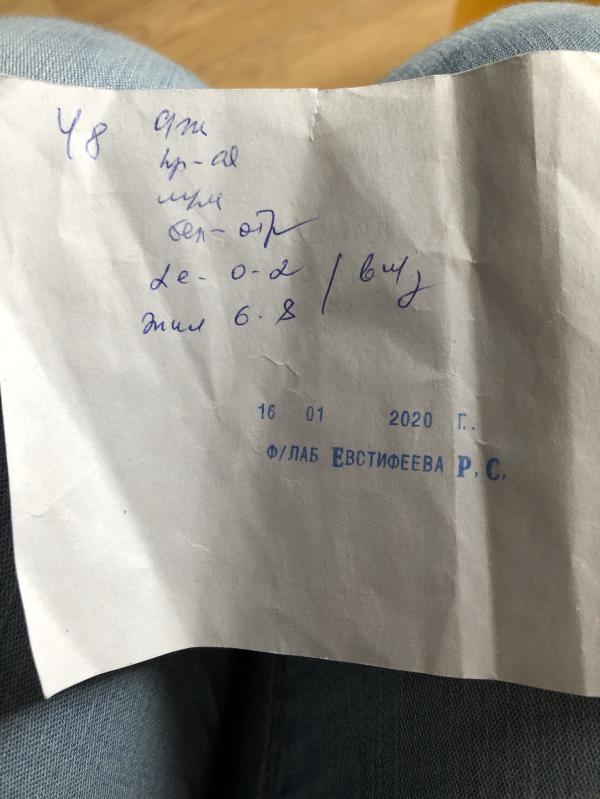 48 с/ж
пр-ая
мут
бел-отр
Le- 0-2 / в п/з
эпил 6-8
16 01 2020 Г..
Ф/ЛАБ ЕВСТИФЕЕВА Р.С.